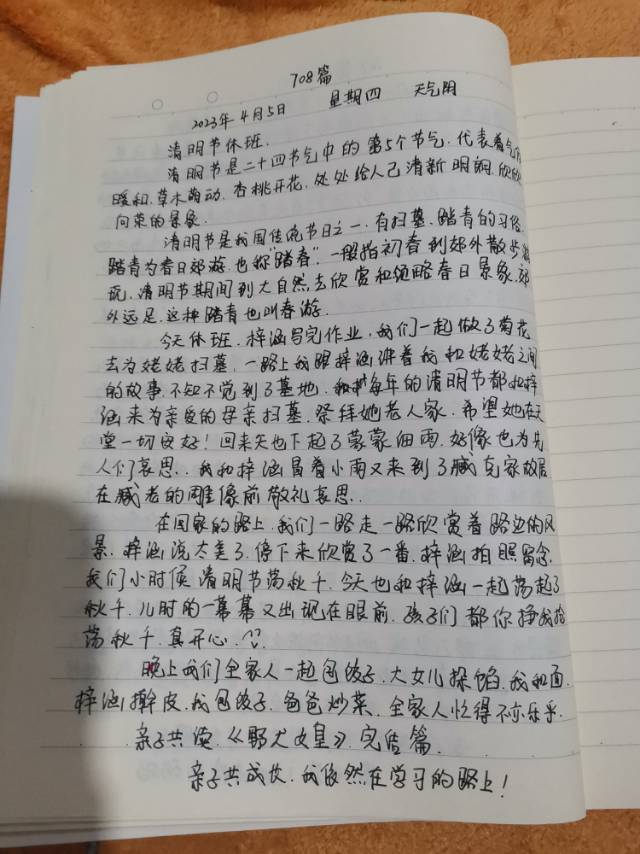 708篇
2023年4月5日 星期四 天气阴
清明节休班.
清明节是二十四节气中的第5个节气.代表着气
暖和.草木萌动.杏桃开花.处处给人己清新明朗.欣欣
向荣的景象.
清明节是我国传统节日之一.有扫墓.踏青的习俗
踏青为春日郊游.也称"踏春".一般指初春到郊外散步游
玩.清明节期间到大自然去欣赏和领略春日景象.郊
外远足.这种踏青也叫春游.
今天休班.梓涵写完作业.我们一起做了菊花
去为姥姥扫墓.一路上我跟梓涵讲着我和姥姥之间
的故事.不知不觉到了墓地.每年的清明节都和梓
涵来为亲爱的母亲扫墓.祭拜她老人家.希望她在天
堂一切安好!回来天也下起了蒙蒙细雨.好像也为先
人们哀思..我和梓涵冒着小雨又来到了臧克家故居
在臧老的雕像前敬礼哀思..
在回家的路上.我们一路走一路欣赏着路边的风
景.梓涵说太美了.停下来欣赏了一番.梓涵拍照留念.
我们小时候清明节荡秋千.今天也和梓涵一起荡起了
秋千.儿时的一幕幕又出现在眼前.孩子们都你挣我抢
荡秋千.真开心.
晚上我们全家人一起包饺子.大女儿揉馅.我和面.
梓涵擀皮.我包饺子.爸爸炒菜.全家人忙得不亦乐乎.
亲子共读.《野犬女皇》.完结篇.
亲子共成长.我依然在学习的路上!